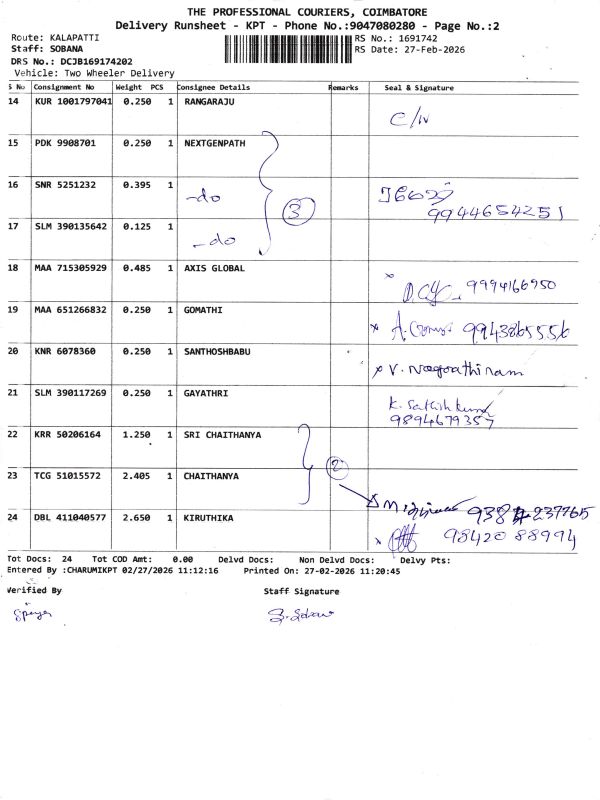 THE PROFESSIONAL COURIERS, COIMBATORE
Delivery Runsheet - KPT - Phone No.:9047080280 - Page No.:2
Route: KALAPATTI
RS No.: 1691742
Staff: SOBANA
RS Date: 27-Feb-2026
DRS No.: DCJB169174202
Vehicle: Two Wheeler Delivery
S No Consignment No Weight PCS Consignee Details Remarks Seal & Signature
14 KUR 1001797041 0.250 1 RANGARAJU
C/N
15 PDK 9908701 0.250 1 NEXTGENPATH
16 SNR 5251232 0.395 1
-do
3
9944654251
17 SLM 390135642 0.125 1
-do
18 MAA 715305929 0.485 1 AXIS GLOBAL
x 9994166950
19 MAA 651266832 0.250 1 GOMATHI
x 9943865556
20 KNR 6078360 0.250 1 SANTHOSHBABU
x V.
21 SLM 390117269 0.250 1 GAYATHRI
K. Sathish kumar
9894679357
22 KRR 50206164 1.250 1 SRI CHAITHANYA
2
23 TCG 51015572 2.405 1 CHAITHANYA
24 DBL 411040577 2.650 1 KIRUTHIKA
x 98420 88994
Tot Docs: 24 Tot COD Amt: 0.00 Delvd Docs: Non Delvd Docs: Delvy Pts:
Entered By :CHARUMIKPT 02/27/2026 11:12:16 Printed On: 27-02-2026 11:20:45
Verified By Staff Signature
S. Sobana